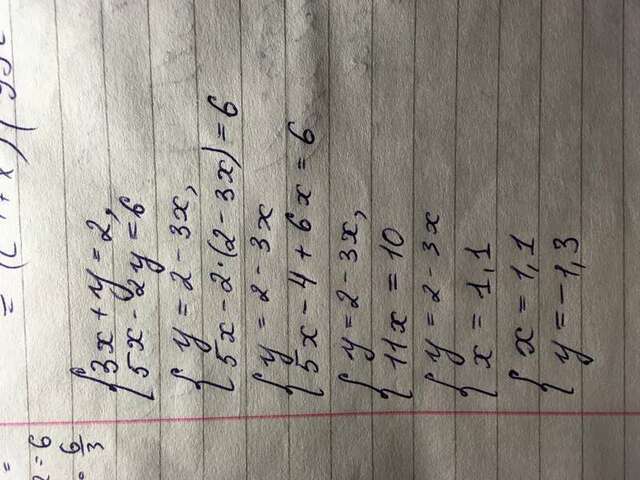 = (2
2 = 6
= 6/3
{ 3x + y = 2,
5x - 2y = 6
{ y = 2 - 3x,
5x - 2·(2 - 3x) = 6
{ y = 2 - 3x
5x - 4 + 6x = 6
{ y = 2 - 3x,
11x = 10
{ y = 2 - 3x
x = 1,1
{ x = 1,1
y = -1,3